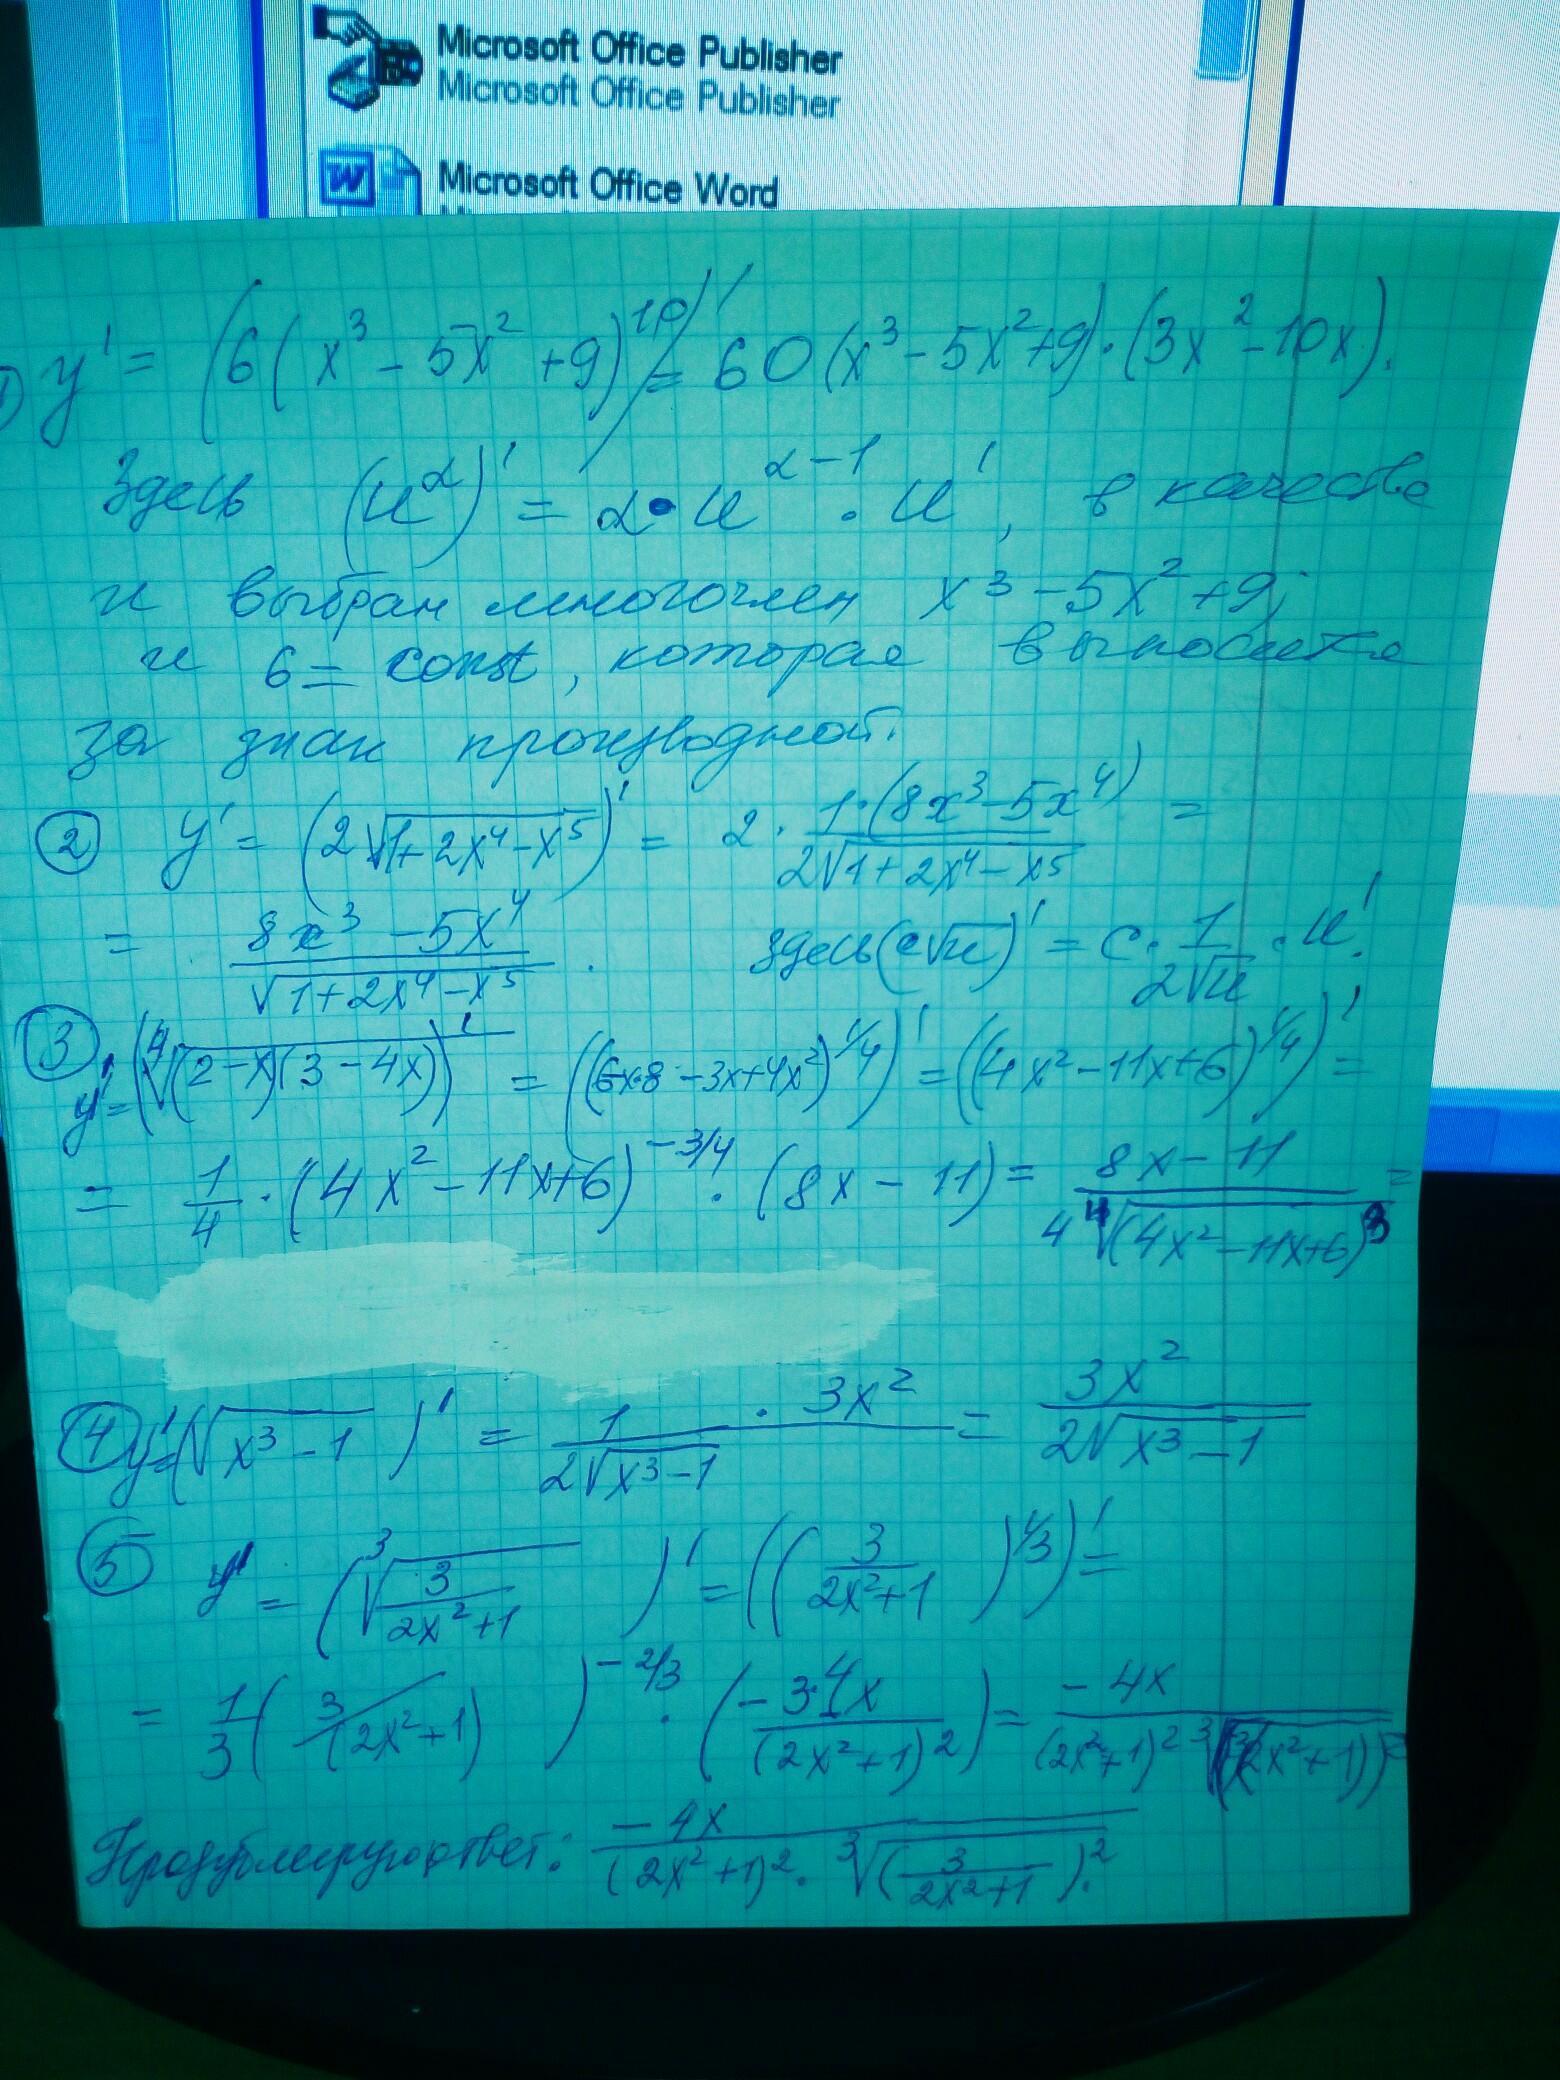 Microsoft Office Publisher
Microsoft Office Publisher
Microsoft Office Word
1) y' = (6(x³ - 5x² + 9)¹⁰)' = 60(x³ - 5x² + 9)·(3x² - 10x).
Здесь (u^α)' = α·u^(α-1)·u', в качестве
u выбран многочлен x³ - 5x² + 9;
и 6 = const, которая выносится
за знак производной.
② y' = (2√(1+2x⁴-x⁵))' = 2·(1·(8x³-5x⁴))/(2√(1+2x⁴-x⁵)) =
= (8x³-5x⁴)/√(1+2x⁴-x⁵). здесь (c√u)' = c·1/(2√u)·u'.
③ y' = (⁴√((2-x)(3-4x)))' = ((6-8x-3x+4x²)^(1/4))' = ((4x²-11x+6)^(1/4))' =
= 1/4·(4x²-11x+6)^(-3/4)·(8x-11) = (8x-11)/(4 ⁴√((4x²-11x+6)³)) =
④ y' = (√(x³-1))' = 1/(2√(x³-1))·3x² = 3x²/(2√(x³-1))
⑤ y' = (³√(3/(2x²+1)))' = ((3/(2x²+1))^(1/3))' =
= 1/3(3/(2x²+1))^(-2/3)·(-3·4x/(2x²+1)²) = -4x/((2x²+1)² ³√((3/(2x²+1))²))
Продублирую ответ: -4x/((2x²+1)²·³√((3/(2x²+1))²)).